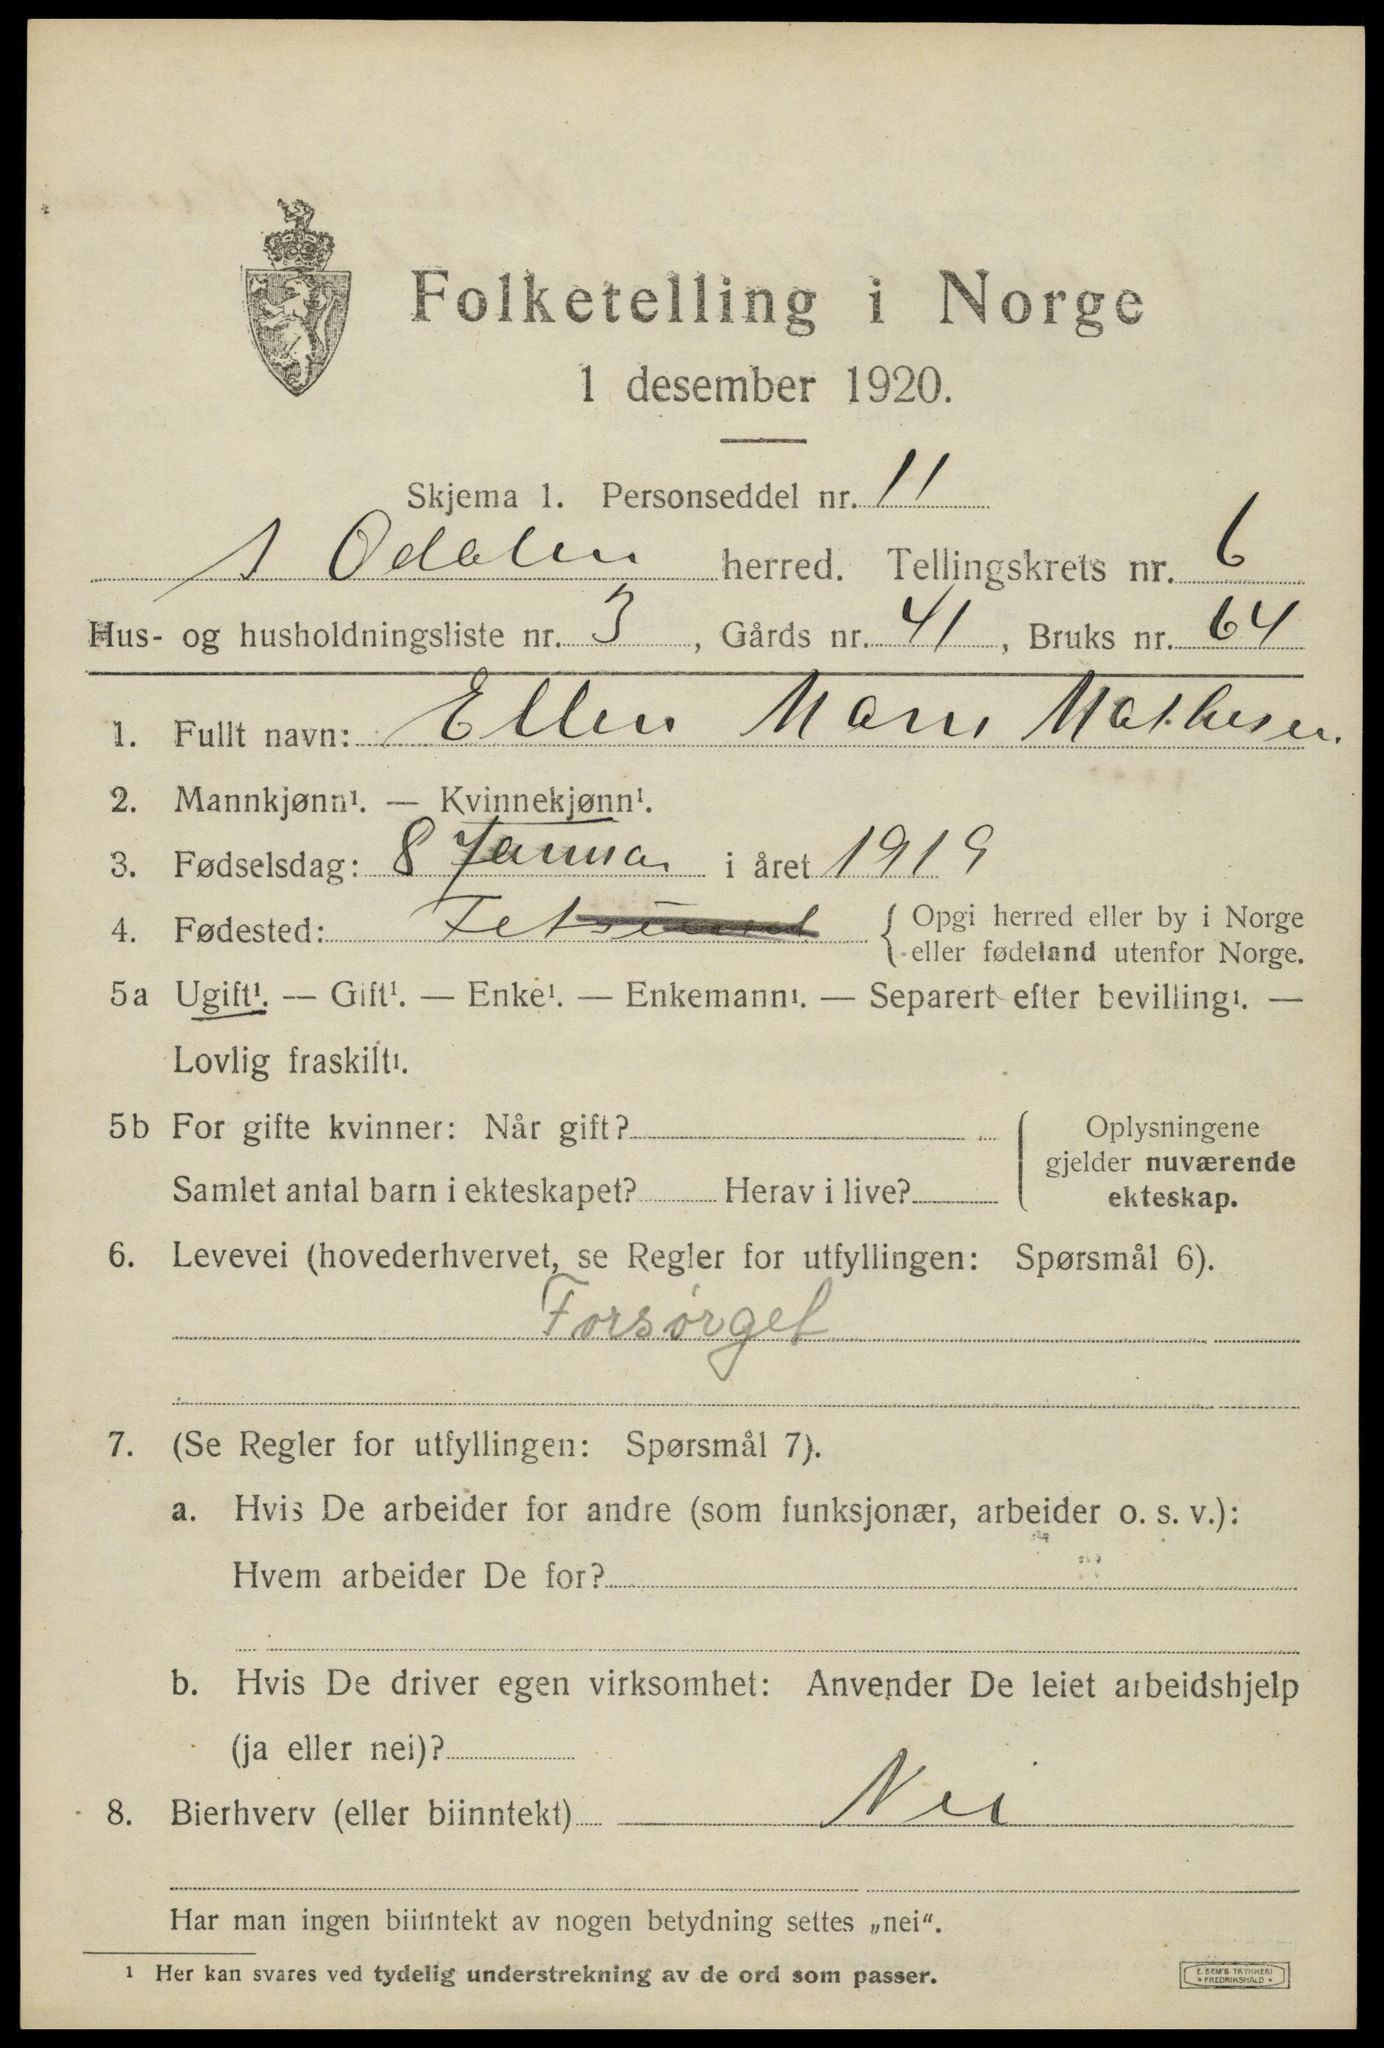 Folketelling i Norge
1 desember 1920.
Skjema 1. Personseddel nr. 11
S Odalen herred. Tellingskrets nr. 6
Hus- og husholdningsliste nr. 3, Gårds nr. 41, Bruks nr. 64
1. Fullt navn: Ellen Marie Mathisen.
2. Mannkjønn¹. — Kvinnekjønn¹.
3. Fødselsdag: 8 Januar i året 1919
4. Fødested: Fet { Opgi herred eller by i Norge
eller fødeland utenfor Norge.
5a Ugift¹. — Gift¹. — Enke¹. — Enkemann¹. — Separert efter bevilling¹. —
Lovlig fraskilt¹.
5b For gifte kvinner: Når gift? { Oplysningene
gjelder nuværende
Samlet antal barn i ekteskapet? Herav i live? ekteskap.
6. Levevei (hovederhvervet, se Regler for utfyllingen: Spørsmål 6).
Forsørget
7. (Se Regler for utfyllingen: Spørsmål 7).
a. Hvis De arbeider for andre (som funksjonær, arbeider o. s. v.):
Hvem arbeider De for?
b. Hvis De driver egen virksomhet: Anvender De leiet arbeidshjelp
(ja eller nei)?
8. Bierhverv (eller biinntekt) Nei
Har man ingen biinntekt av nogen betydning settes „nei“.
¹ Her kan svares ved tydelig understrekning av de ord som passer.
E. SEM'S TRYKKERI
* FREDRIKSHALD *